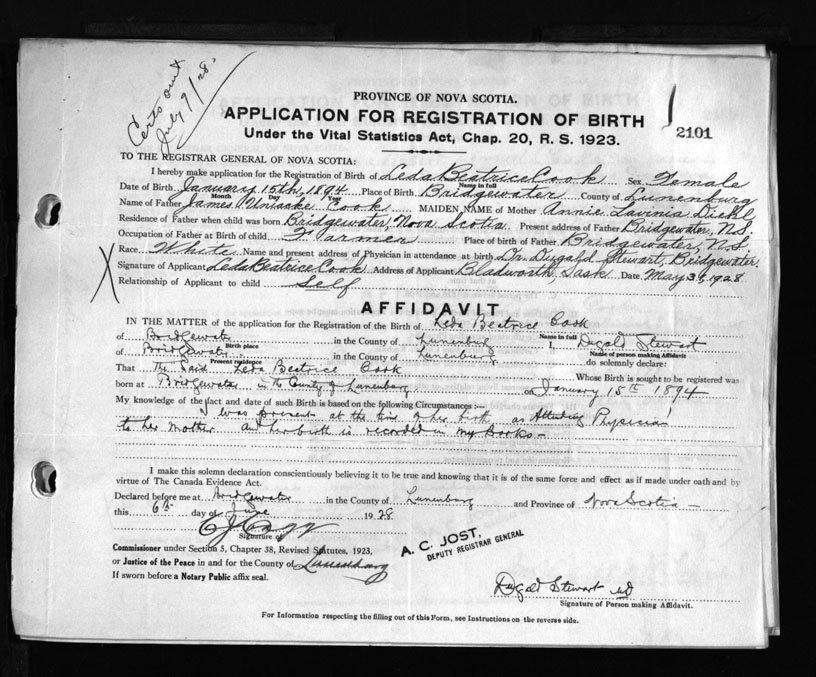 Certs out
July 9/28.
PROVINCE OF NOVA SCOTIA.
APPLICATION FOR REGISTRATION OF BIRTH
Under the Vital Statistics Act, Chap. 20, R. S. 1923.
2101
TO THE REGISTRAR GENERAL OF NOVA SCOTIA:
I hereby make application for the Registration of Birth of Leda Beatrice Cook Sex Female
Name in full
Date of Birth January 15th, 1894 Place of Birth Bridgewater County of Lunenburg
Month Day Year
Name of Father James Uniacke Cook MAIDEN NAME of Mother Annie Lavinia Diehl
Residence of Father when child was born Bridgewater, Nova Scotia Present address of Father Bridgewater, N.S.
Occupation of Father at Birth of child Farmer Place of birth of Father Bridgewater, N.S.
Race White Name and present address of Physician in attendance at birth Dr. Dugald Stewart, Bridgewater.
Signature of Applicant Leda Beatrice Cook Address of Applicant Bladworth, Sask Date May 31, 1928
Relationship of Applicant to child Self
X
AFFIDAVIT
IN THE MATTER of the application for the Registration of the Birth of Leda Beatrice Cook
Name in full
of Bridgewater in the County of Lunenburg I, Dugald Stewart
Birth place Name of person making Affidavit
of Bridgewater in the County of Lunenburg do solemnly declare:
Present residence
That The Said Leda Beatrice Cook Whose Birth is sought to be registered was
born at Bridgewater in the County of Lunenburg on January 15th 1894
My knowledge of the fact and date of such Birth is based on the following Circumstances :—
I was present at the time of her birth as Attending Physician
to her mother and her birth is recorded in my books —
I make this solemn declaration conscientiously believing it to be true and knowing that it is of the same force and effect as if made under oath and by
virtue of The Canada Evidence Act.
Declared before me at Bridgewater in the County of Lunenburg and Province of Nova Scotia —
this 6th day of June 1928
Signature of
A. C. JOST,
DEPUTY REGISTRAR GENERAL
Commissioner under Section 5, Chapter 38, Revised Statutes, 1923,
or Justice of the Peace in and for the County of Lunenburg
If sworn before a Notary Public affix seal.
Dugald Stewart MD
Signature of Person making Affidavit.
For Information respecting the filling out of this Form, see Instructions on the reverse side.